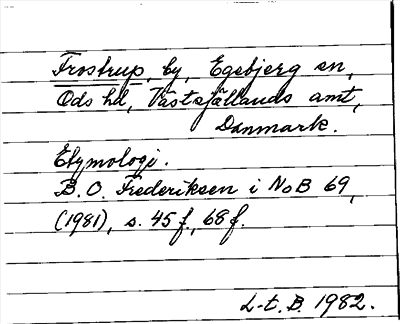 Frostrup, by, Egebjerg sn,
Ods hd, Västsjällands amt,
Danmark.
Etymologi.
B. O. Frederiksen i NoB 69,
(1981), s. 45 f., 68 f.
L-t. B. 1982.